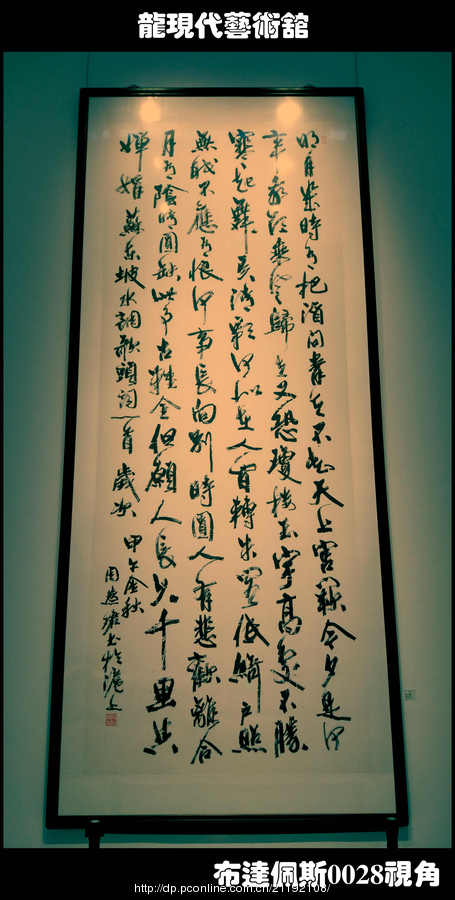 龍現代藝術舘
明月幾時有把酒問青天不知天上宮闕今夕是何
年我欲乘風歸去又恐瓊樓玉宇高處不勝
寒起舞弄清影何似在人間轉朱閣低綺戶照
無眠不應有恨何事長向別時圓人有悲歡離合
月有陰晴圓缺此事古難全但願人長久千里共
嬋娟 蘇東坡水調歌頭詞一首 歲次 甲午金秋
周書於滬上
布達佩斯0028視角
http://dp.pconline.com.cn/21192106/